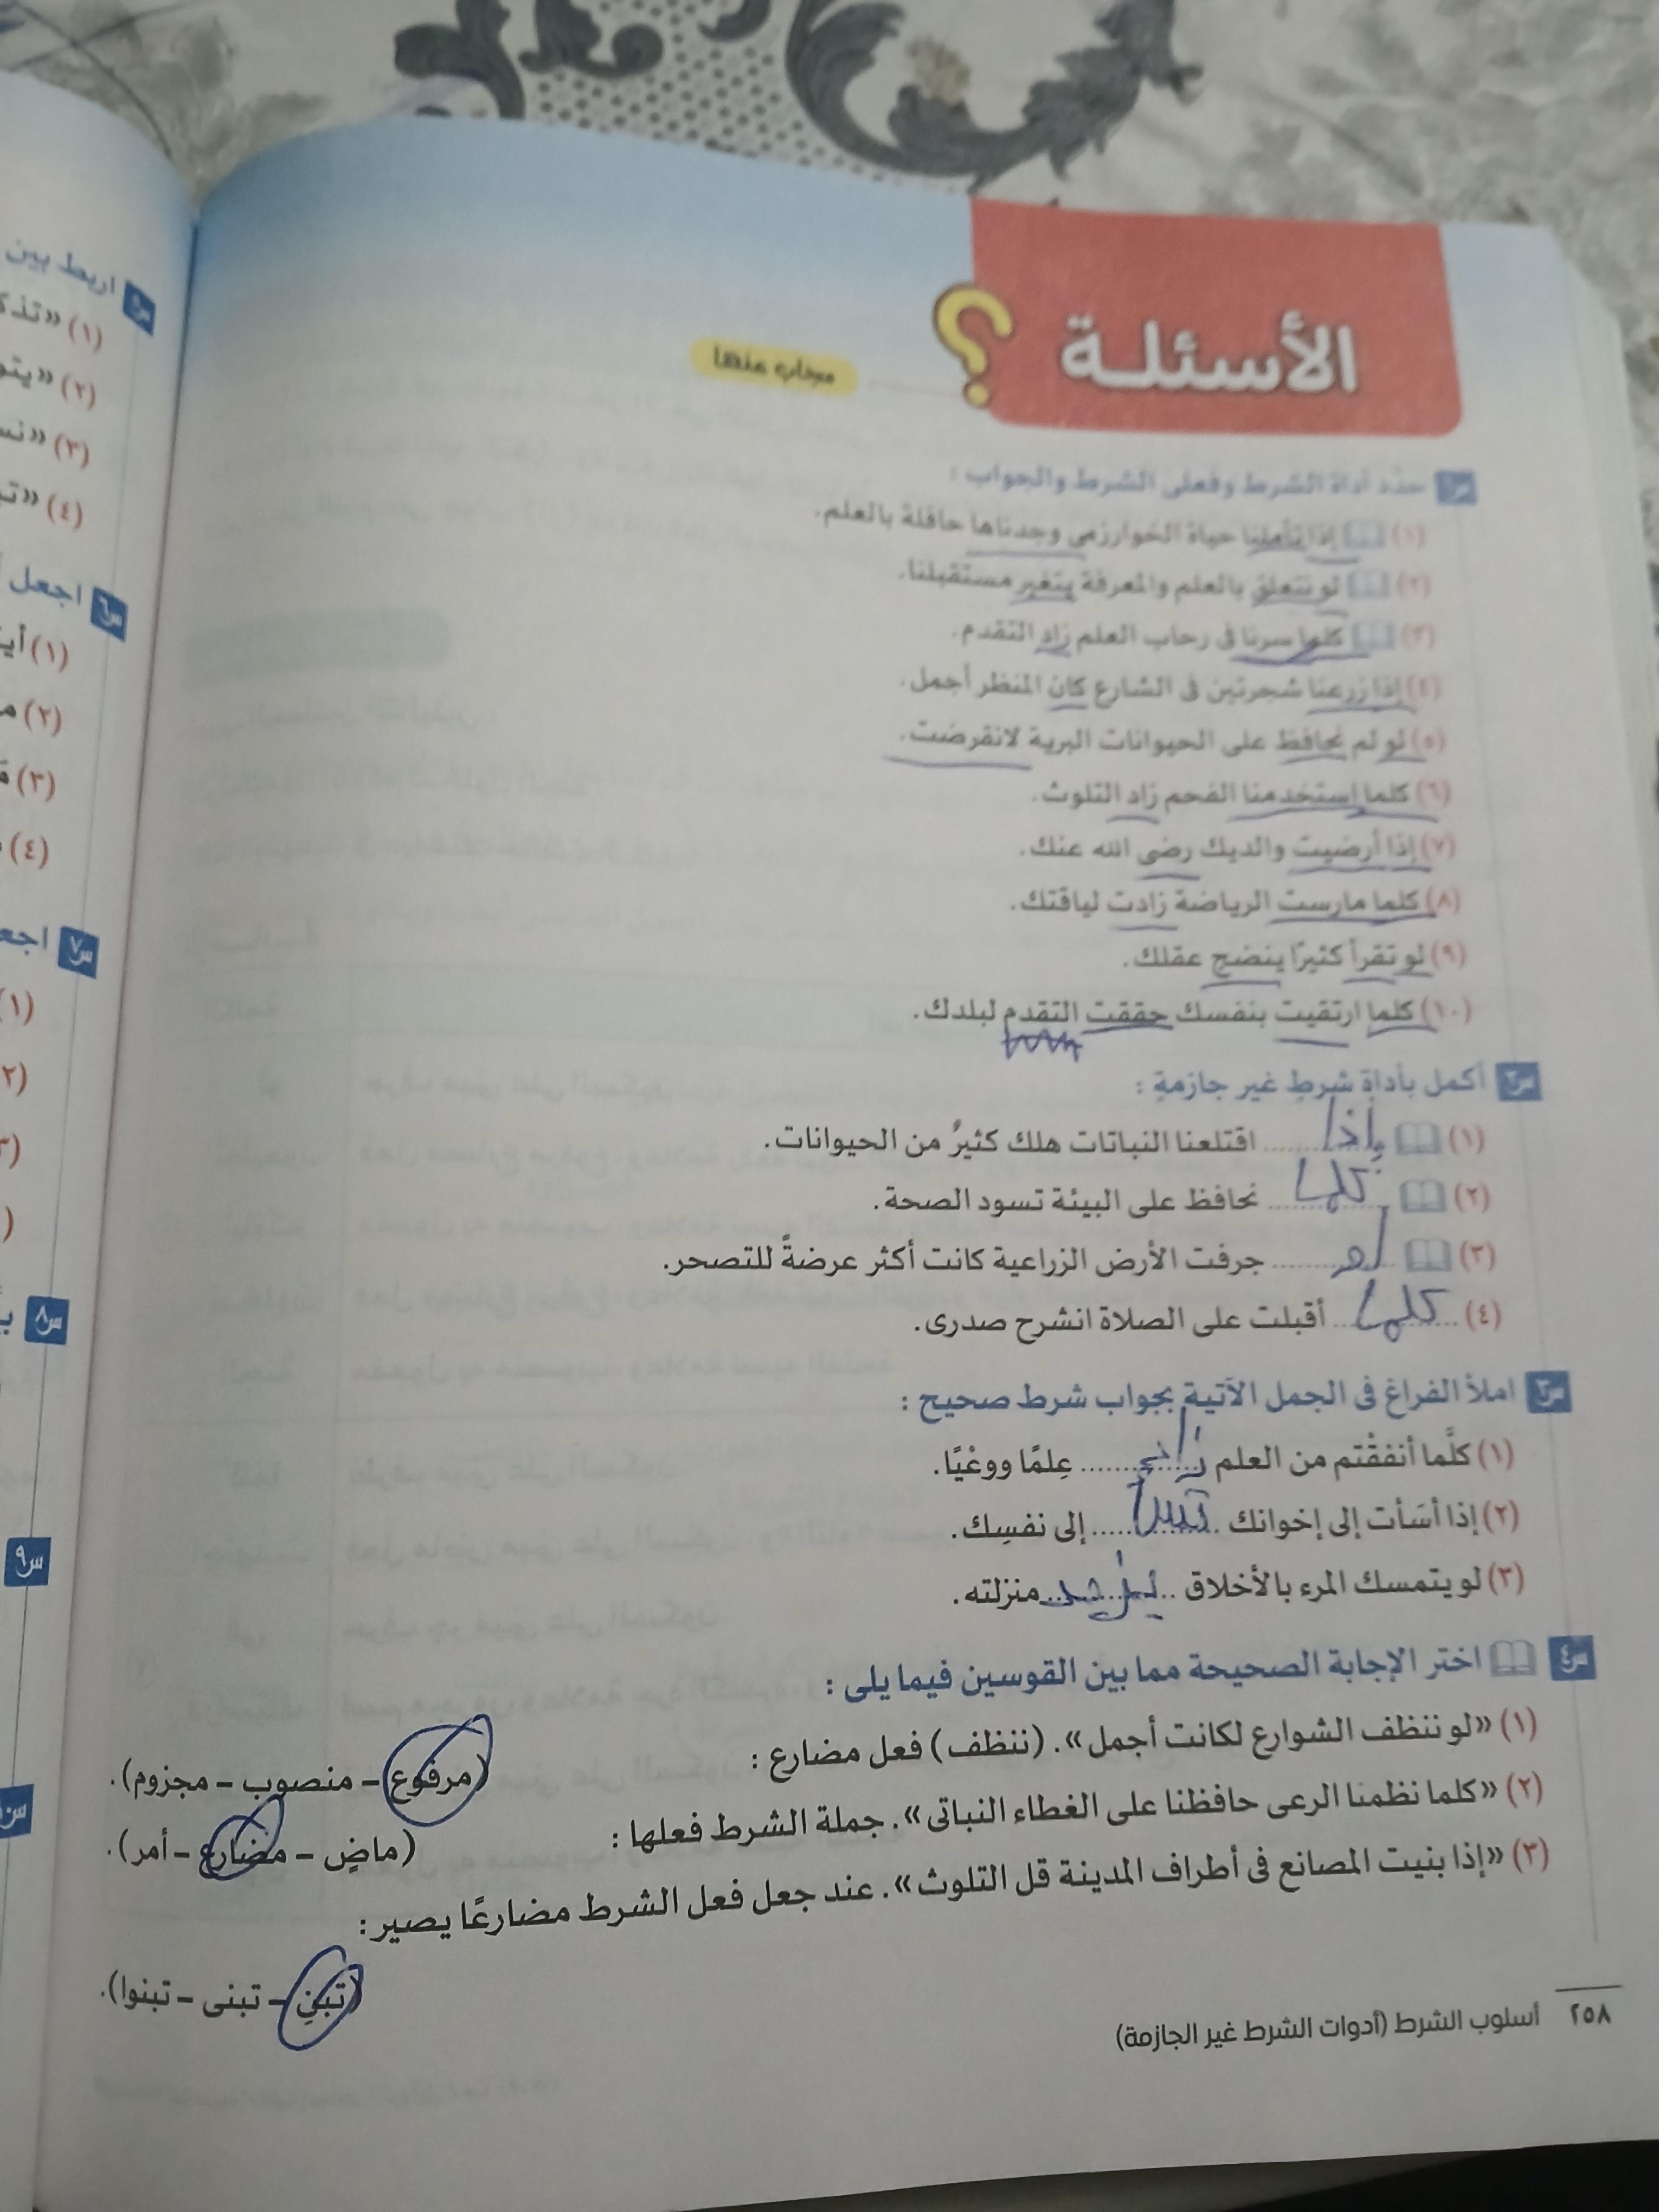 الأسئلة
مجاب عنها
س١ حدّد أداة الشرط وفعلى الشرط والجواب :
(١) إذا تأملنا حياة الخوارزمى وجدناها حافلة بالعلم.
(٢) لو نتعلق بالعلم والمعرفة يتغير مستقبلنا.
(٣) كلما سرنا فى رحاب العلم زاد التقدم.
(٤) إذا زرعنا شجرتين فى الشارع كان المنظر أجمل.
(٥) لو لم نحافظ على الحيوانات البرية لانقرضت.
(٦) كلما استخدمنا الفحم زاد التلوث.
(٧) إذا أرضيت والديك رضى الله عنك.
(٨) كلما مارست الرياضة زادت لياقتك.
(٩) لو تقرأ كثيرًا ينضج عقلك.
(١٠) كلما ارتقيت بنفسك حققت التقدم لبلدك.
س٢ أكمل بأداة شرط غير جازمة :
(١) إذا اقتلعنا النباتات هلك كثيرٌ من الحيوانات.
(٢) كلما نحافظ على البيئة تسود الصحة.
(٣) لو جرفت الأرض الزراعية كانت أكثر عرضةً للتصحر.
(٤) كلما أقبلت على الصلاة انشرح صدرى.
س٣ املأ الفراغ فى الجمل الآتية بجواب شرط صحيح :
(١) كلَّما أنفقْتم من العلم ........ عِلمًا ووعْيًا.
(٢) إذا أسَأت إلى إخوانك ........ إلى نفسِك.
(٣) لو يتمسك المرء بالأخلاق ........ منزلته.
س٤ اختر الإجابة الصحيحة مما بين القوسين فيما يلى :
(١) «لو ننظف الشوارع لكانت أجمل». (ننظف) فعل مضارع :
(مرفوع – منصوب – مجزوم).
(٢) «كلما نظمنا الرعى حافظنا على الغطاء النباتى». جملة الشرط فعلها :
(ماضٍ – مضارع – أمر).
(٣) «إذا بنيت المصانع فى أطراف المدينة قل التلوث». عند جعل فعل الشرط مضارعًا يصير :
(تبنِ – تبنى – تبنوا).
٢٥٨ أسلوب الشرط (أدوات الشرط غير الجازمة)
س٥ اربط بين
(١)
(٢)
(٣)
(٤)
س٦ اجعل
(١)
(٢)
(٣)
(٤)
س٧
س٨
س٩